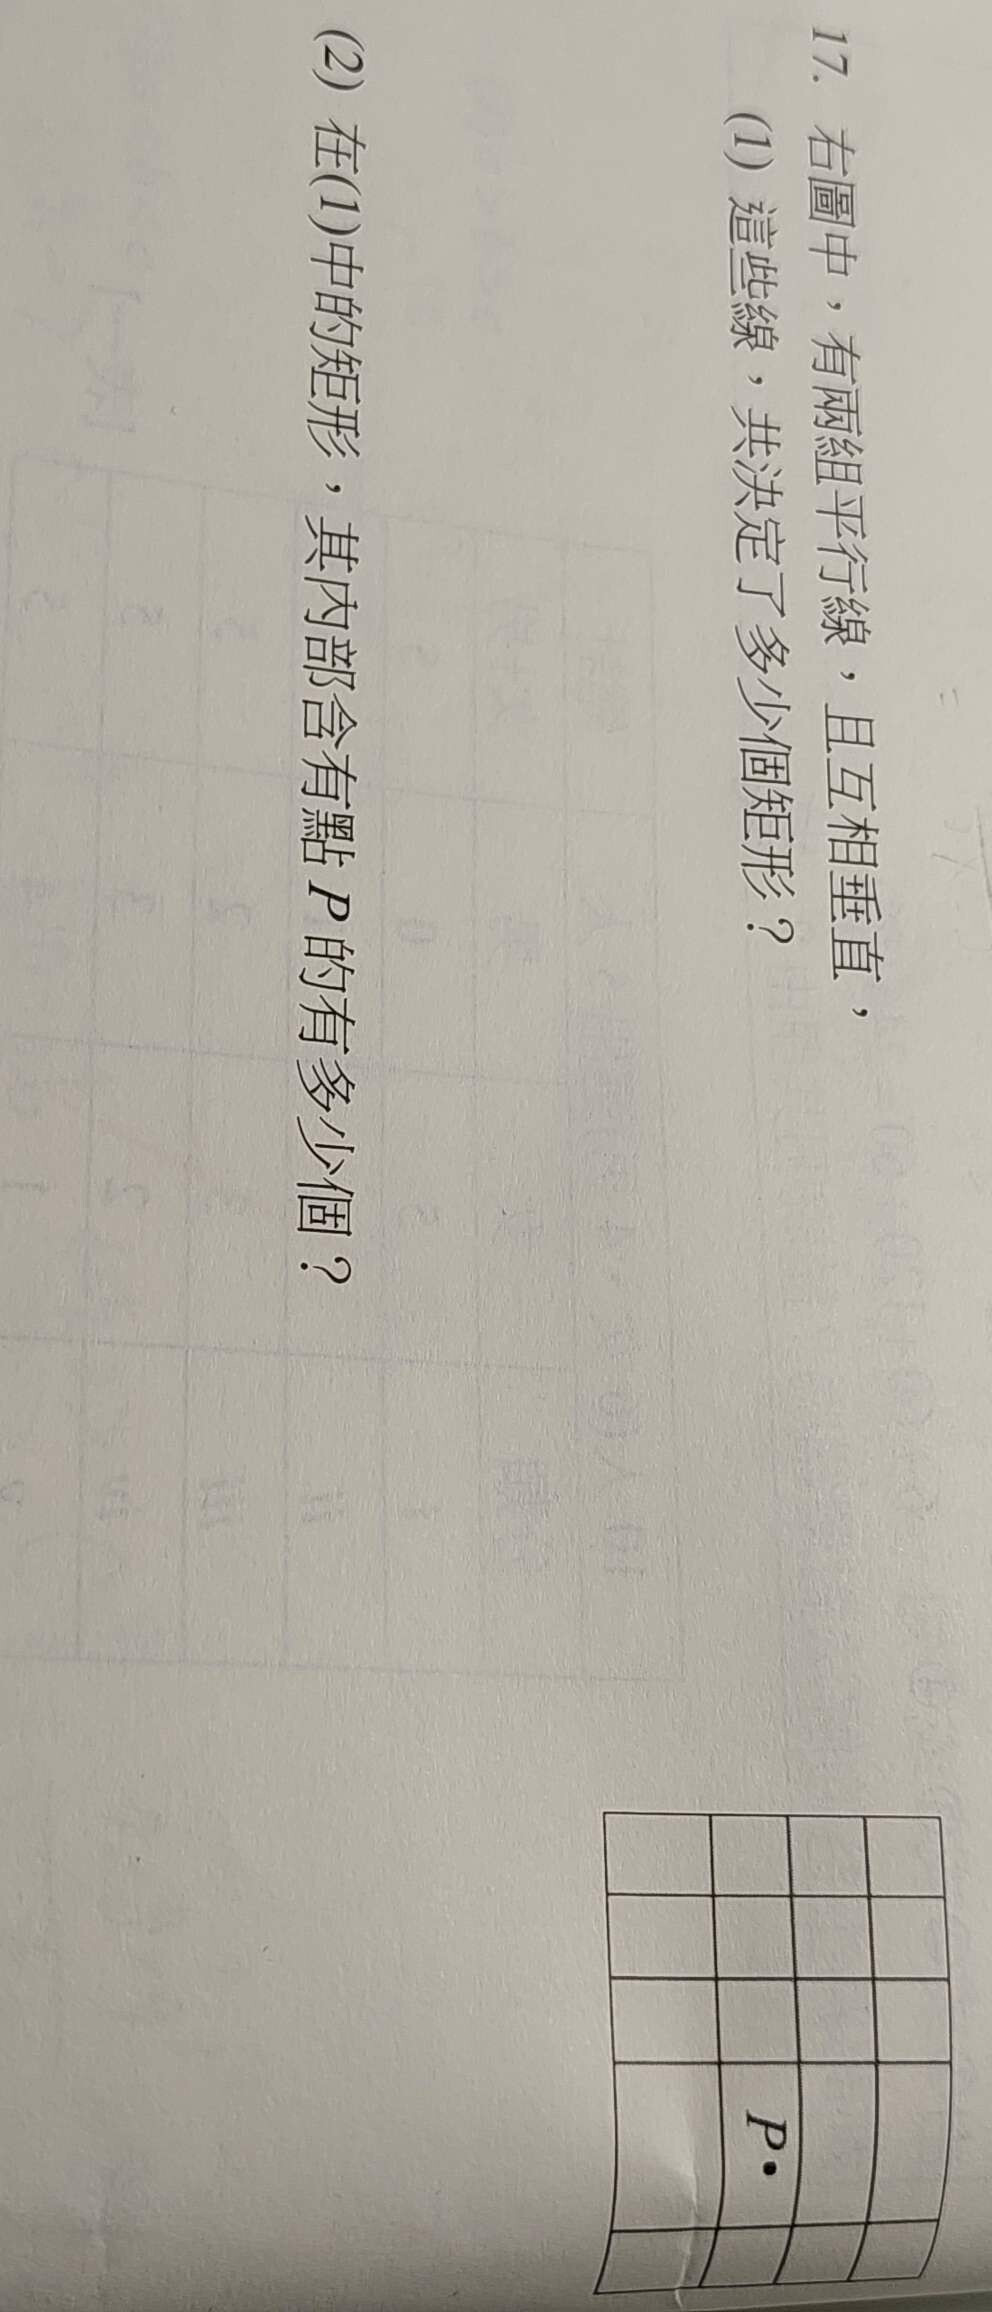 17. 右圖中，有兩組平行線，且互相垂直，
(1) 這些線，共決定了多少個矩形？
(2) 在(1)中的矩形，其內部含有點 P 的有多少個？
P